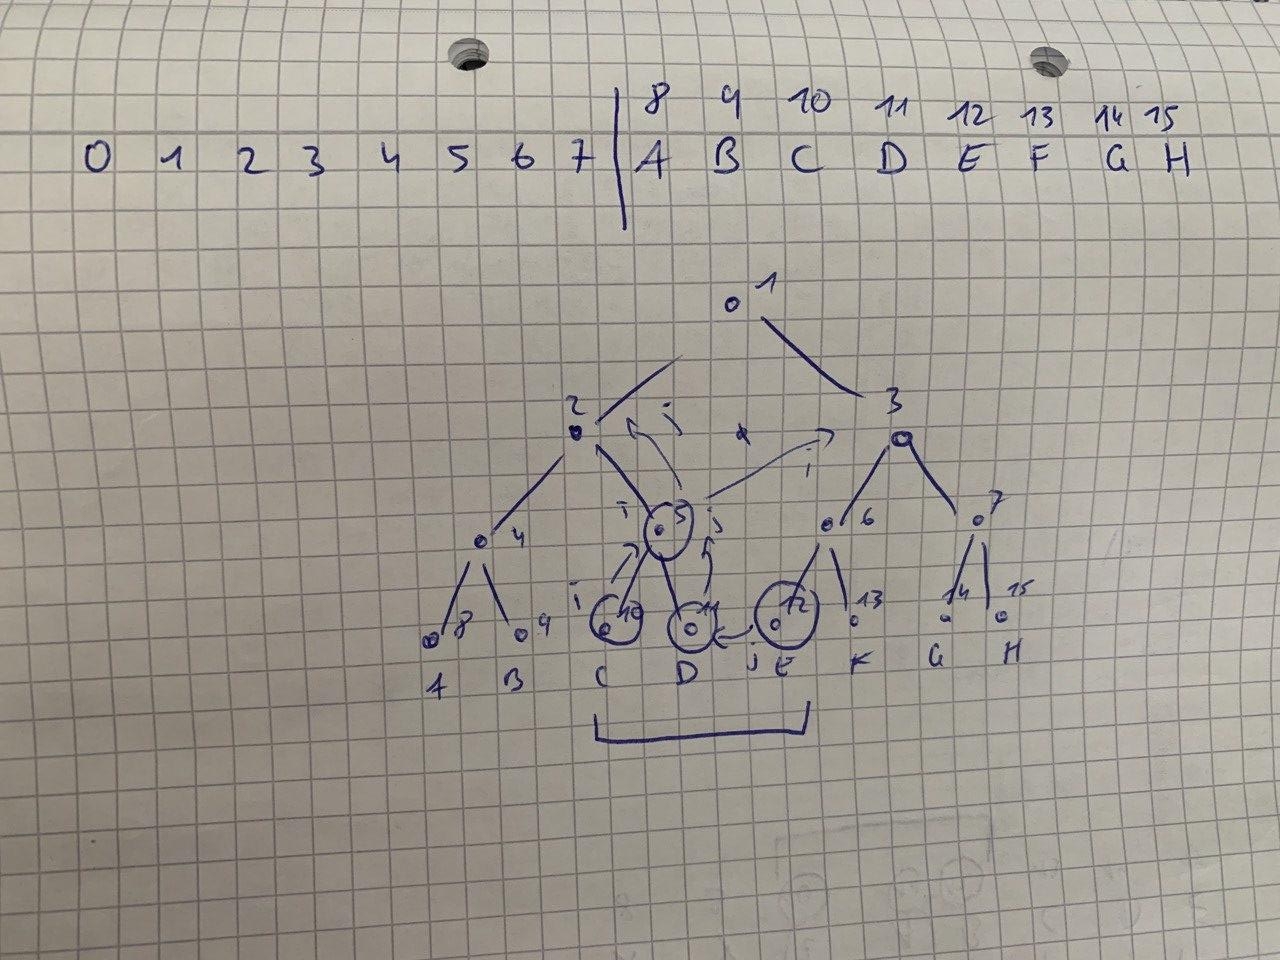 8 9 10 11 12 13 14 15
0 1 2 3 4 5 6 7 A B C D E F G H
1
2 3
j
i
i 5 j 6 7
4
i 10 11 12 13 14 15
8 9
j
A B C D E F G H